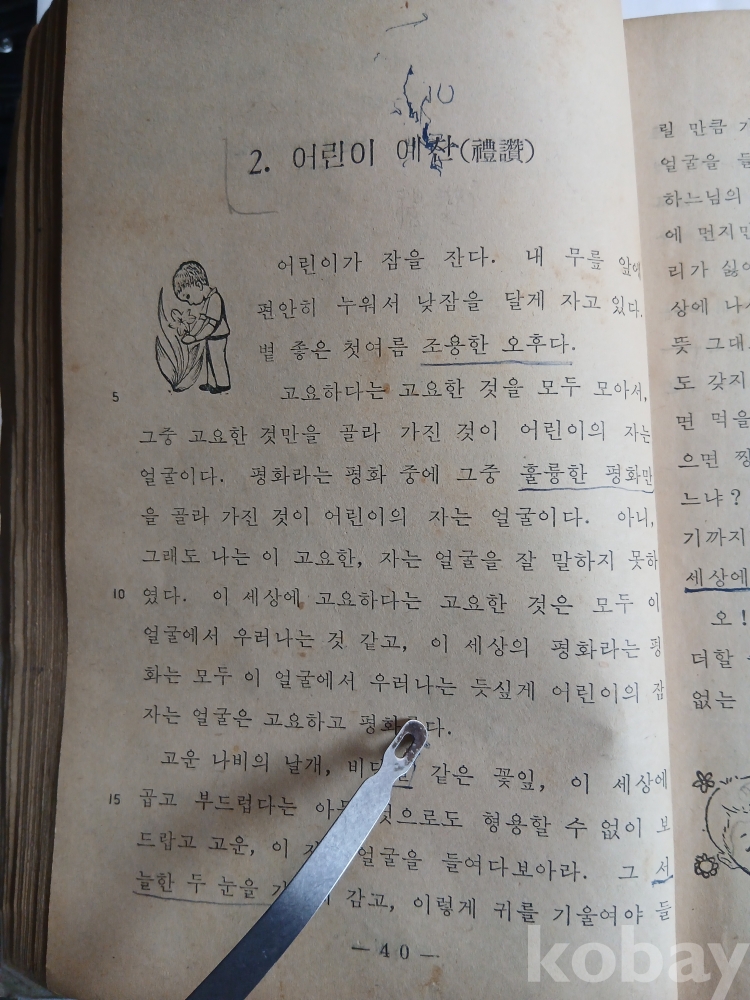 2. 어린이 예찬(禮讚)
어린이가 잠을 잔다. 내 무릎 앞에
편안히 누워서 낮잠을 달게 자고 있다.
볕 좋은 첫여름 조용한 오후다.
5 고요하다는 고요한 것을 모두 모아서,
그중 고요한 것만을 골라 가진 것이 어린이의 자는
얼굴이다. 평화라는 평화 중에 그중 훌륭한 평화만
을 골라 가진 것이 어린이의 자는 얼굴이다. 아니,
그래도 나는 이 고요한, 자는 얼굴을 잘 말하지 못하
10 였다. 이 세상에 고요하다는 고요한 것은 모두 이
얼굴에서 우러나는 것 같고, 이 세상의 평화라는 평
화는 모두 이 얼굴에서 우러나는 듯싶게 어린이의 잠
자는 얼굴은 고요하고 다.
고운 나비의 날개, 같은 꽃잎, 이 세상에
15 곱고 부드럽다는 것으로도 형용할 수 없이 보
드랍고 고운, 이 얼굴을 들여다보아라. 그 서
늘한 두 눈을 감고, 이렇게 귀를 기울여야 들
— 40 —
릴 만큼
얼굴을
하느님의
에 먼지만
리가
상에
뜻
도 갖지
면 먹을
으면
느냐?
기까지
세상에
오!
더할
없는
kobay